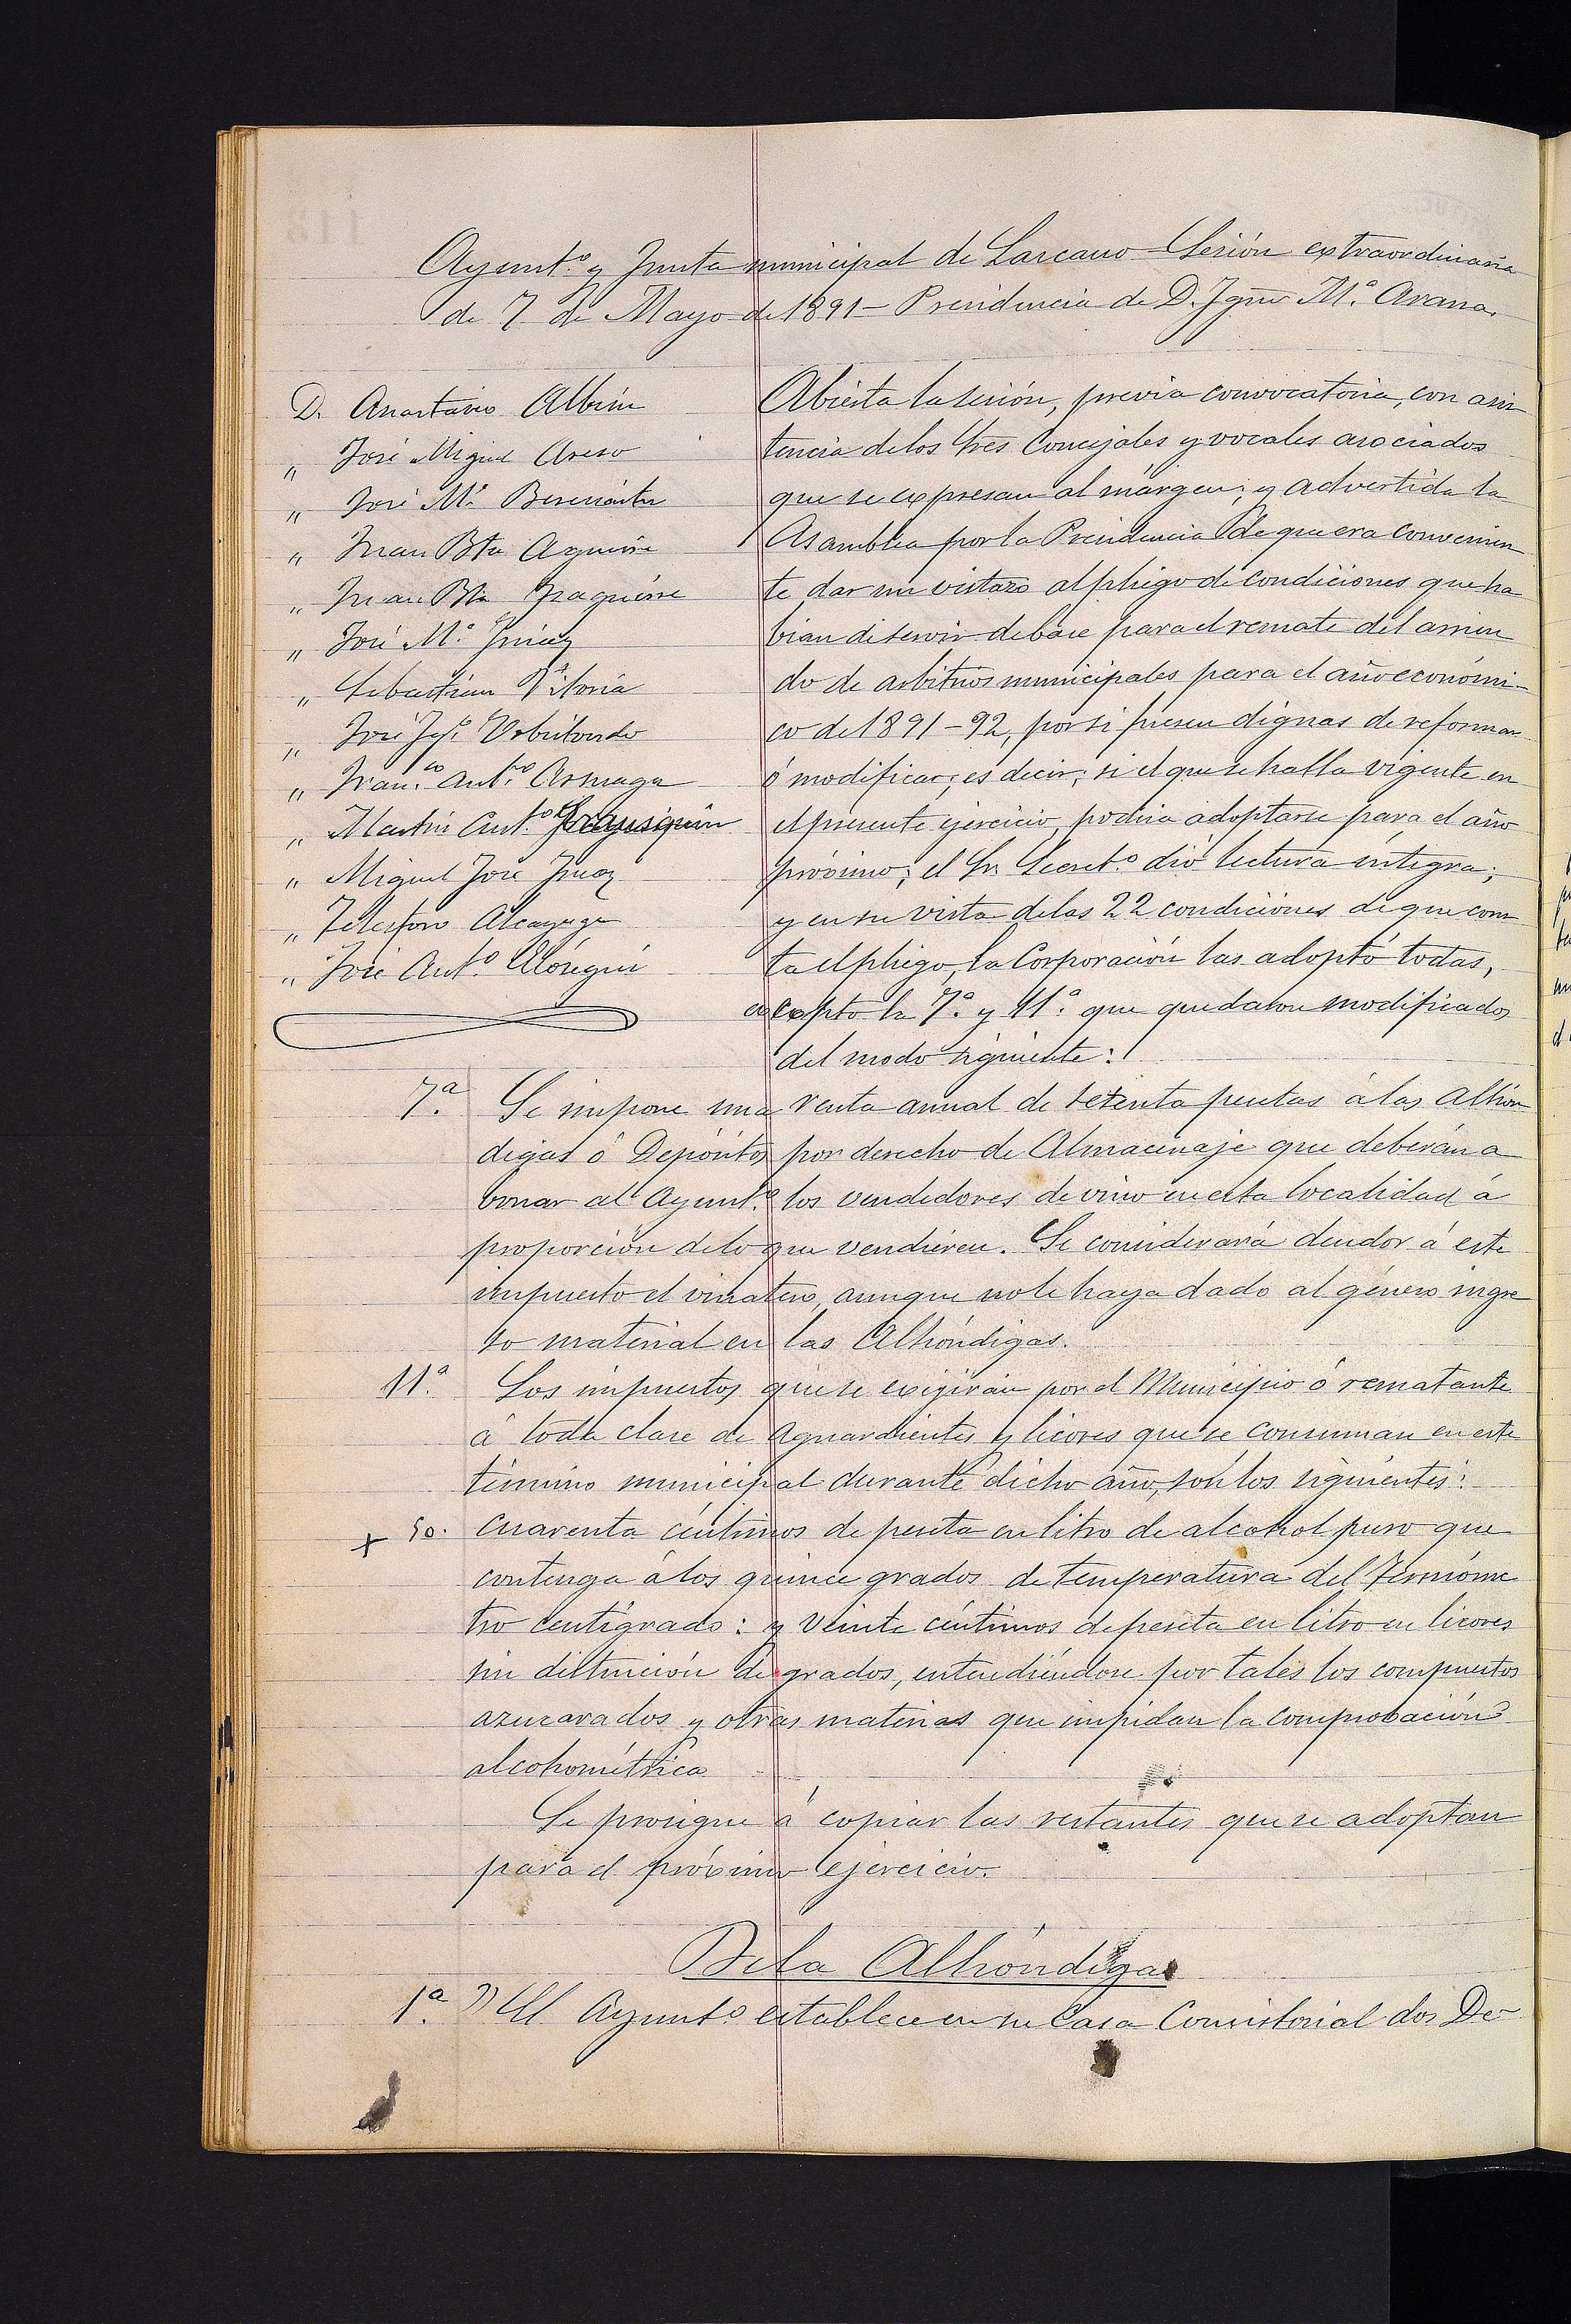 Ayunt.º y Junta municipal de Lazcano = Sesión extraordinaria
de 7 de Mayo de 1891 — Presidencia de D. Ygnº M.ª Arana.
D. Anastasio Albisu
„ José Miguel Areso
„ José M.ª
„ Juan Bta Aguirre
„ Juan Bta Yzaguirre
„ José M.ª
„ Sebastián Vitoria
„ José Ygº Urbiztondo
„ Fran.co Ant.º Arsuaga
„ Martín Ant.º
„ Miguel José
„ Telesforo Alcayaga
„ José Ant.º Elósegui
Abierta la sesión, previa convocatoria, con asis
tencia de los Sres Concejales y vocales asociados
que se expresan al márgen; y advertida la
Asamblea por la Presidencia de que era convenien
te dar un vistazo al pliego de condiciones que ha
bian de servir de base para el remate del arrien
do de arbitrios municipales para el año económi-
co de 1891-92, por si fuesen dignas de reformar
ó modificar; es decir, si el que se halla vigente en
el presente ejercicio, podria adoptarse para el año
próximo; el Sr. Secret.º dió lectura íntegra;
y en su vista de las 22 condiciones de que cons
ta el pliego, la Corporación las adoptó todas,
excepto la 7.ª y 11.ª que quedaron modificados
del modo siguiente:
7.ª Se impone una renta anual de setenta pesetas á las Alhón
digas ó Depósitos por derecho de Almacenaje que deberán a
bonar al Ayunt.º los vendedores de vino en esta localidad á
proporción de lo que vendieren. Se considerará deudor á este
impuesto el vinatero, aunque no le haya dado al género ingre
so material en las Alhóndigas.
11.ª Los impuestos que se exigirán por el Municipio ó rematante
á toda clase de aguardientes y licores que se consuman en este
término municipal durante dicho año, son los siguientes:
+ 50. Cuarenta céntimos de peseta en litro de alcohol puro que
contenga á los quince grados de temperatura del Termóme
tro centígrado: y veinte céntimos de peseta en litro en licores
sin distinción de grados, entendiéndose por tales los compuestos
azucarados y otras materias que impidan la comprobación
alcohométrica
Se prosigue á copiar las restantes que se adoptan
para el próximo ejercicio.
De la Alhóndiga
1.ª " El Ayunt.º establece en su Casa Consistorial dos De-